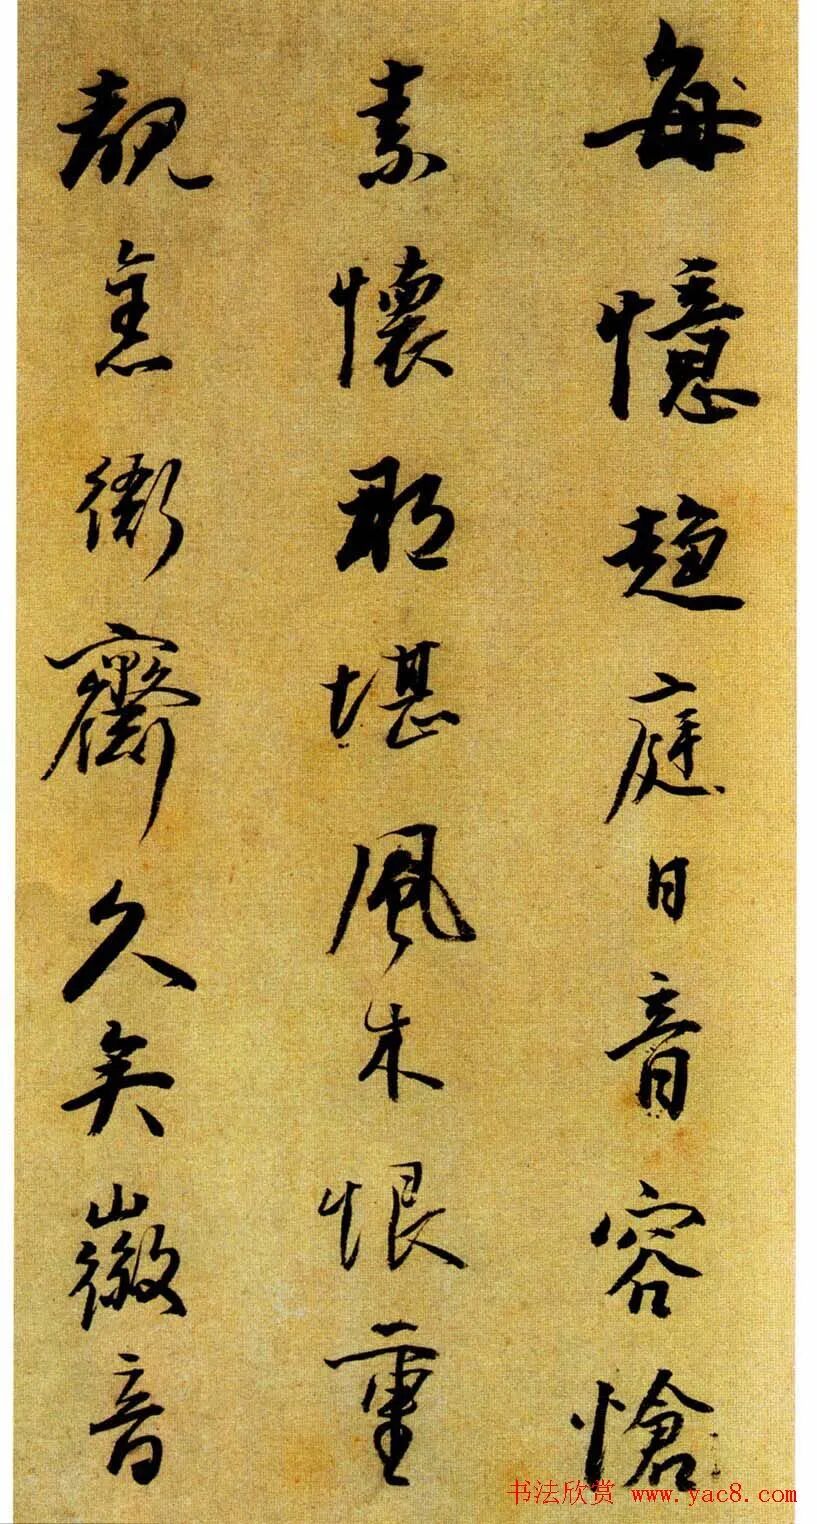 每憶趨庭日音容愴
素懷那堪風木恨重
靚舊衙齋久矣徽音
书法欣赏 www.yac8.com